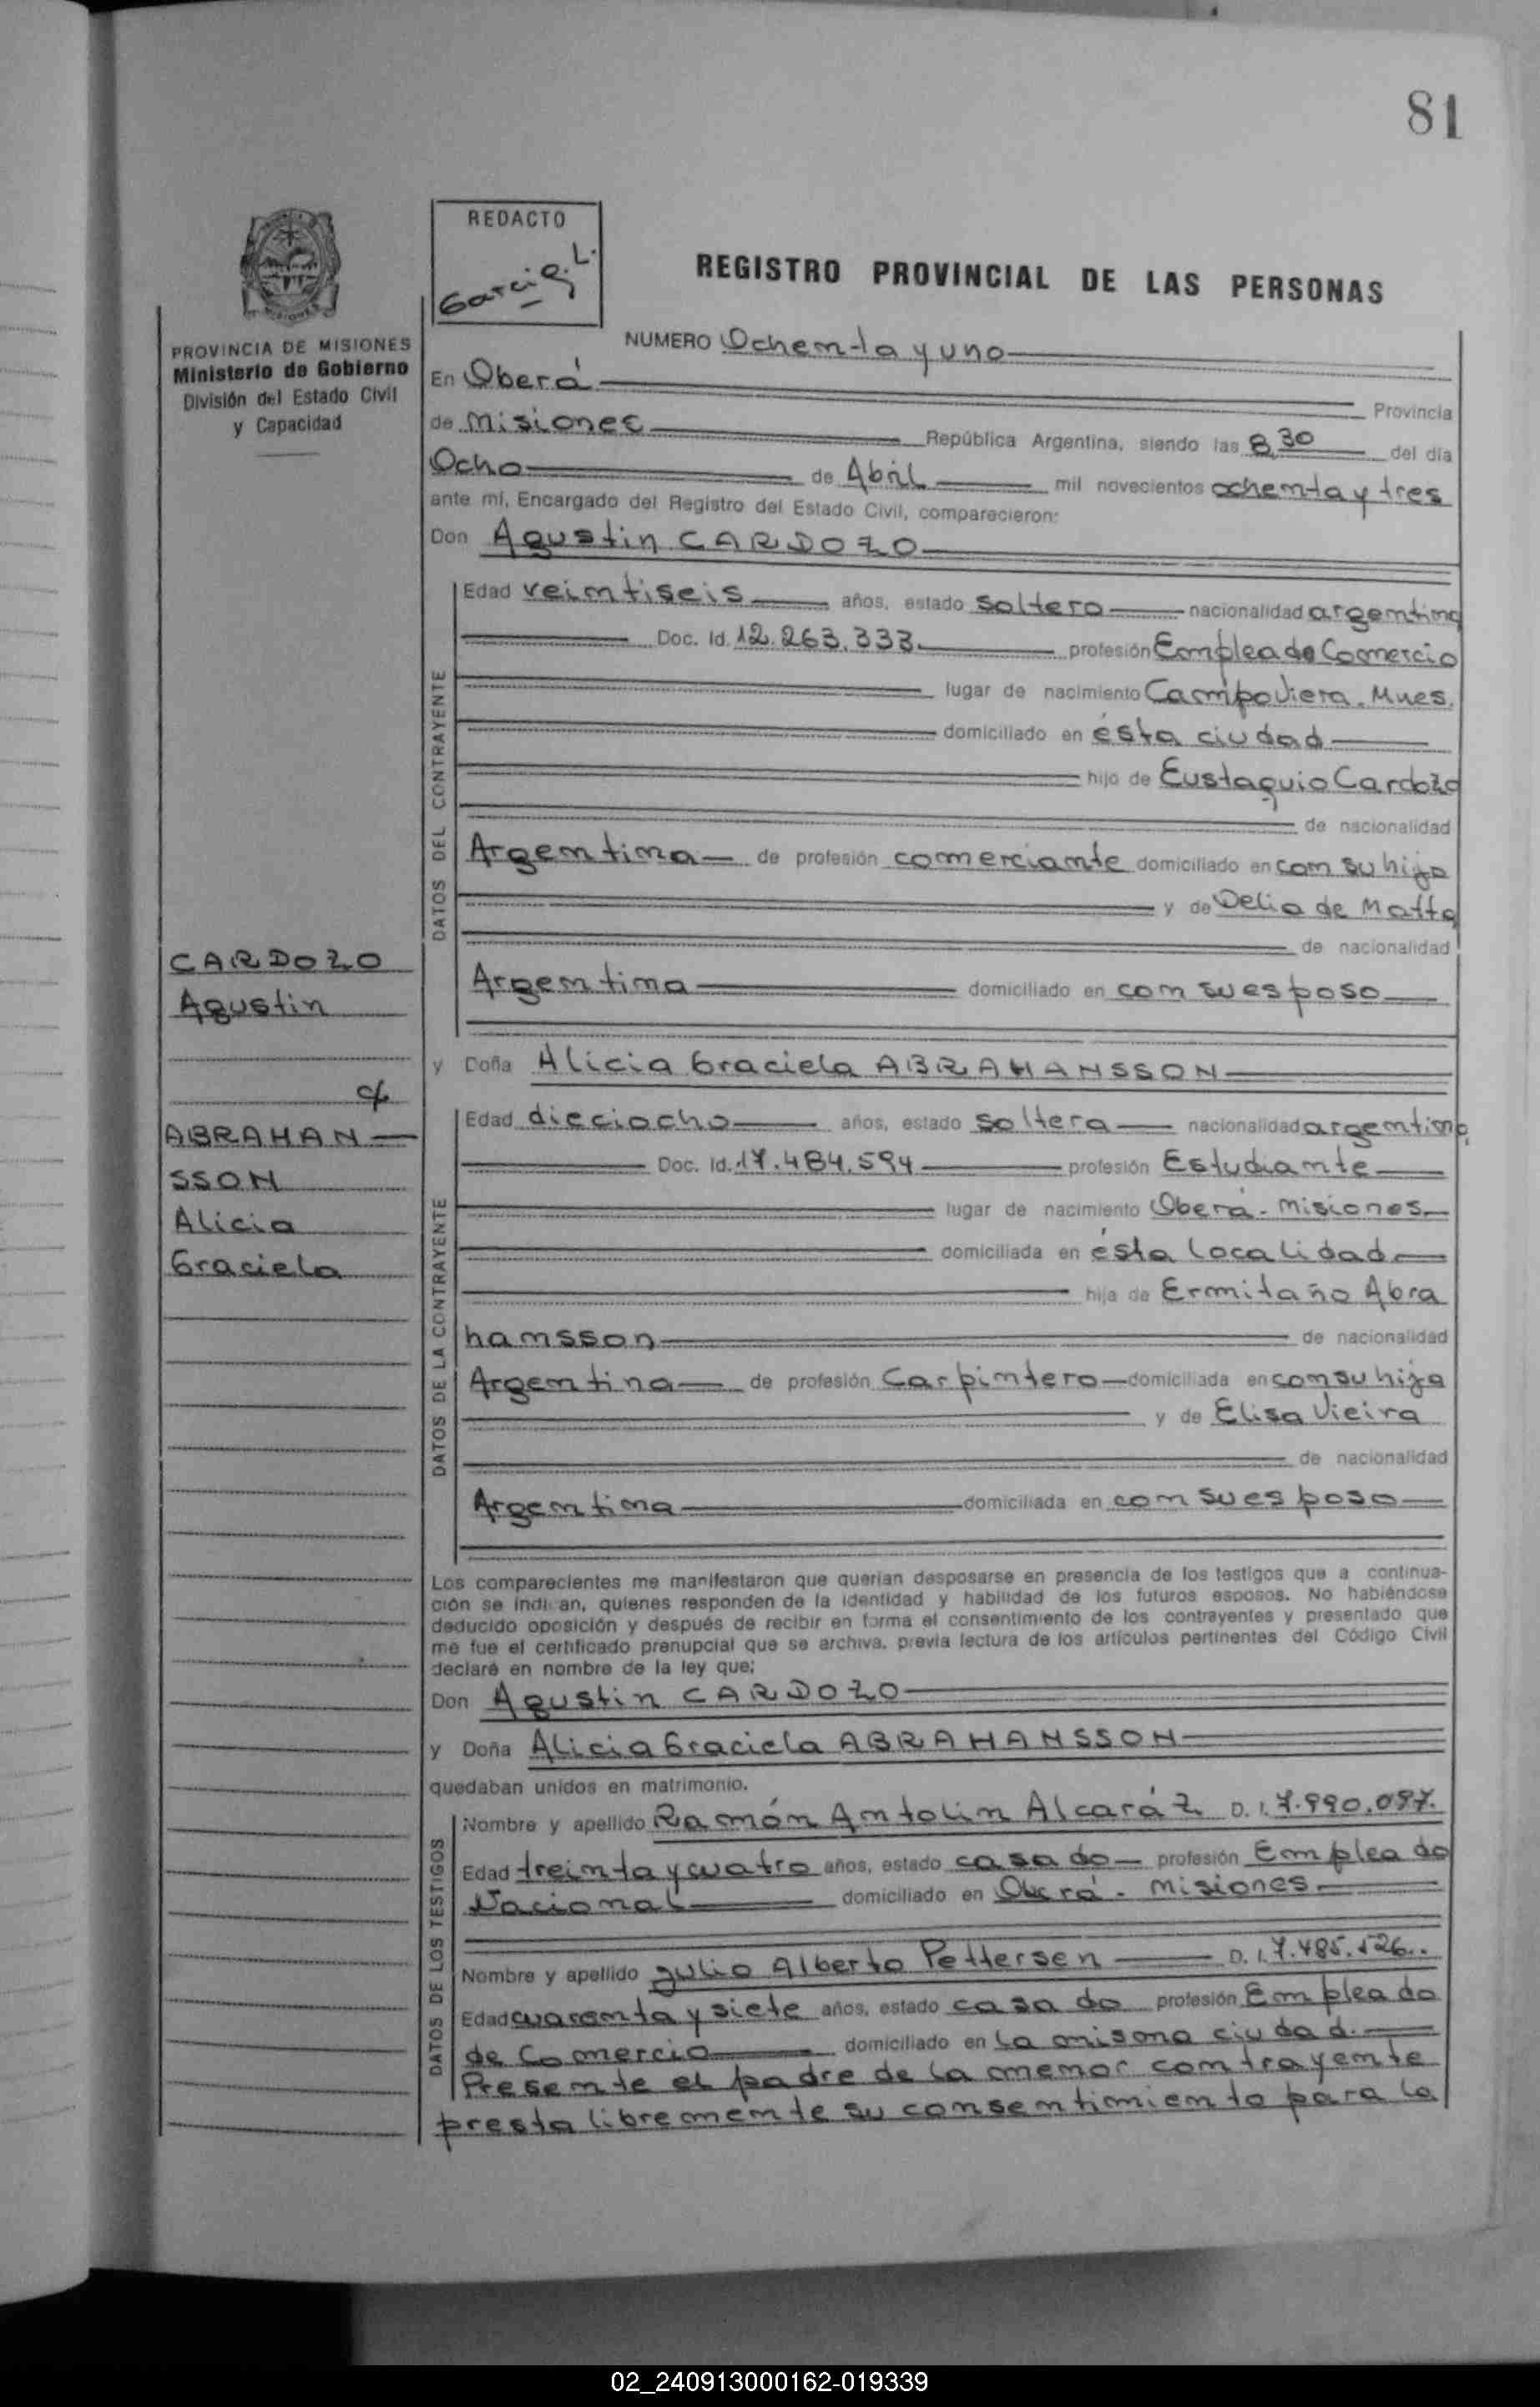 81
REDACTO
Garcia, L.
REGISTRO PROVINCIAL DE LAS PERSONAS
PROVINCIA DE MISIONES
Ministerio de Gobierno
División del Estado Civil
y Capacidad
NUMERO Ochenta y uno
En Oberá Provincia
de Misiones República Argentina, siendo las 8,30 del día
Ocho de Abril mil novecientos ochenta y tres
ante mí, Encargado del Registro del Estado Civil, comparecieron:
Don Agustin CARDOZO
DATOS DEL CONTRAYENTE
Edad veintiseis años, estado soltero nacionalidad argentina
Doc. Id. 12.263.333 profesión Empleado Comercio
lugar de nacimiento Campo Viera. Mnes.
domiciliado en ésta ciudad
hijo de Eustaquio Cardozo
de nacionalidad
Argentina de profesión comerciante domiciliado en con su hijo
y de Delia de Matta
de nacionalidad
Argentina domiciliado en con su esposo
CARDOZO
Agustin
c/
ABRAHAN-
SSON
Alicia
Graciela
y Doña Alicia Graciela ABRAHANSSON
DATOS DE LA CONTRAYENTE
Edad dieciocho años, estado soltera nacionalidad argentina
Doc. Id. 17.484.594 profesión Estudiante
lugar de nacimiento Oberá - Misiones
domiciliada en ésta localidad
hija de Ermitaño Abra
hansson de nacionalidad
Argentina de profesión Carpintero domiciliada en con su hija
y de Elisa Vieira
de nacionalidad
Argentina domiciliada en con su esposo
Los comparecientes me manifestaron que querían desposarse en presencia de los testigos que a continua-
ción se indican, quienes responden de la identidad y habilidad de los futuros esposos. No habiéndose
deducido oposición y después de recibir en forma el consentimiento de los contrayentes y presentado que
me fue el certificado prenupcial que se archiva, previa lectura de los artículos pertinentes del Código Civil
declaré en nombre de la ley que:
Don Agustin CARDOZO
y Doña Alicia Graciela ABRAHANSSON
quedaban unidos en matrimonio.
DATOS DE LOS TESTIGOS
Nombre y apellido Ramón Antolin Alcaráz D. I. 7.990.097.
Edad treinta y cuatro años, estado casado profesión Empleado
Nacional domiciliado en Oberá - Misiones
Nombre y apellido Julio Alberto Pettersen D. I. 7.485.526..
Edad cuarenta y siete años, estado casado profesión Empleado
de Comercio domiciliado en la misma ciudad.
Presente el padre de la menor contrayente
presta libremente su consentimiento para la
02_240913000162-019339